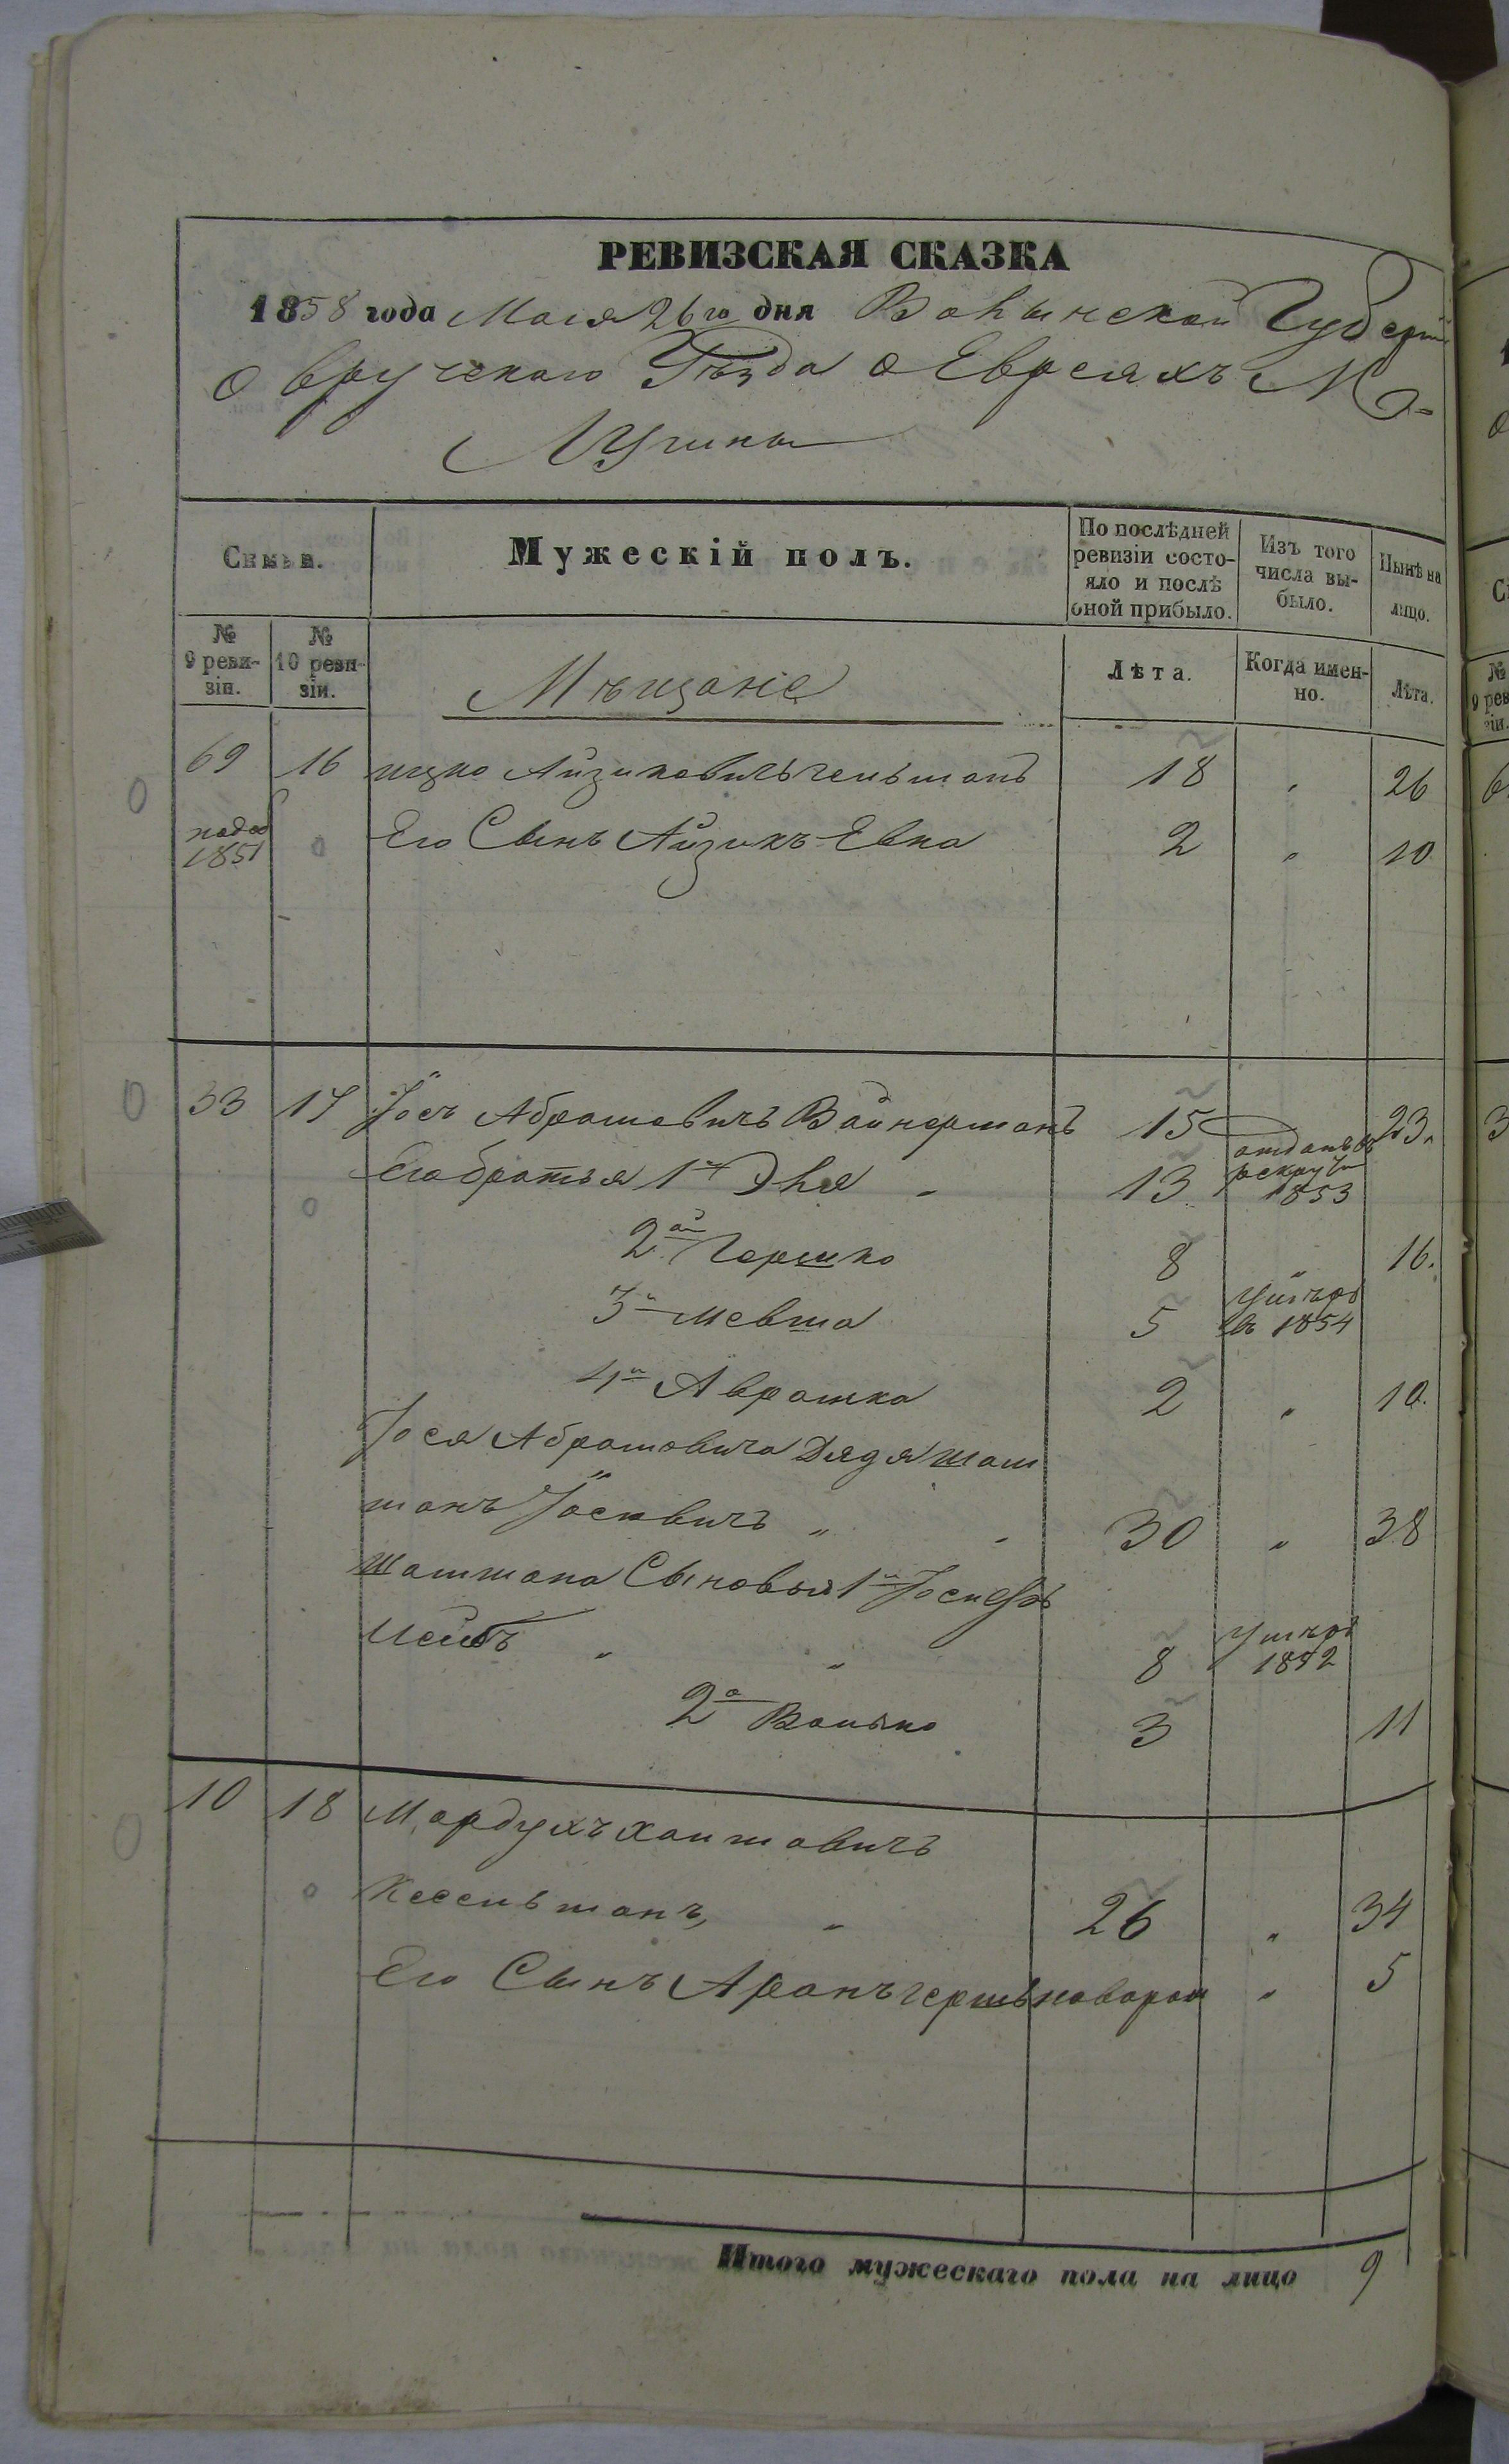 РЕВИЗСКАЯ СКАЗКА
1858 года Мая 26го дня Волынской Губерніи
Овручского Уѣзда о Евреяхъ М
Лугины
Семьи.
Мужескій полъ.
По послѣдней ревизіи состо-яло и послѣ оной прибыло.
Изъ того числа вы-было.
Нынѣ на лицо.
№ 9 реви-зіи.
№ 10 реви-зіи.
Мѣщане
Лѣта.
Когда имен-но.
Лѣта.
69 16 ицко Айзиковичъ 18 " 26
1851 Его Сынъ Айзикъ Евна 2 " 10
33 17 Іось Абрамовичъ Вайнерманъ 15 23
Его братья 1й Эля 13 отданъ въ рекруты 1853
2ой Гершко 8 " 16.
3й мевша 5 Умеръ въ 1854
4й Аврамко 2 " 10.
Іося Абрамовича Дядя Шаш
манъ Іосіовичъ " 30 " 38
Шашмана Сыновья 1й Іосифъ
" " 8 Умеръ 1852
2й 3 11
10 18 Мордухъ Хаимовичъ
Кесельманъ, " 26 " 34
Его Сынъ Аронъ гершъ новорож " 5
Итого мужескаго пола на лицо 9